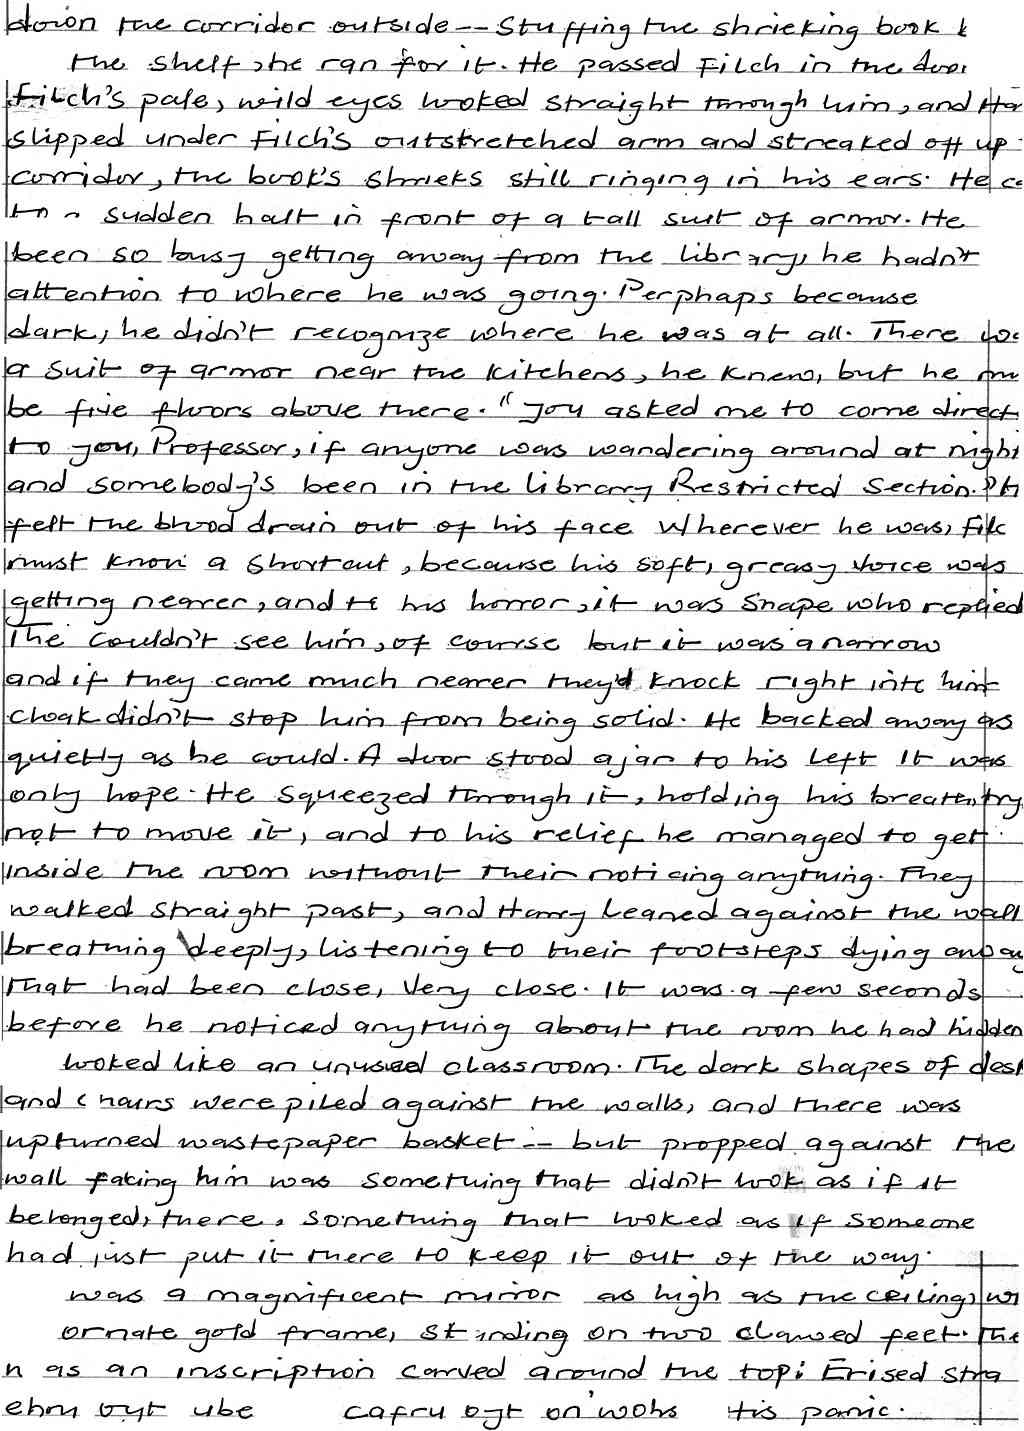 down the corridor outside -- Stuffing the shrieking book
the shelf, he ran for it. He passed Filch in the
Filch's pale, wild eyes looked straight through him, and
slipped under Filch's outstretched arm and streaked off up
corridor, the book's shrieks still ringing in his ears. He
to a sudden halt in front of a tall suit of armor. He
been so busy getting away from the library, he hadn't
attention to where he was going. Perphaps because
dark, he didn't recognize where he was at all. There
a suit of armor near the kitchens, he knew, but he
be five floors above there. "You asked me to come direct
to you, Professor, if anyone was wandering around at night
and somebody's been in the library Restricted Section."
felt the blood drain out of his face Wherever he was,
must know a shortcut, because his soft, greasy voice was
getting nearer, and to his horror, it was Snape who replied
The couldn't see him, of course but it was a narrow
and if they came much nearer they'd knock right into him
cloak didn't stop him from being solid. He backed away as
quietly as he could. A door stood ajar to his left It was
only hope. He squeezed through it, holding his breath, try
not to move it, and to his relief he managed to get
inside the room without their noticing anything. They
walked straight past, and Harry leaned against the wall
breathing deeply, listening to their footsteps dying away
That had been close, Very close. It was a few seconds
before he noticed anything about the room he had hidden
looked like an unused classroom. The dark shapes of
and chairs were piled against the walls, and there was
upturned wastepaper basket -- but propped against the
wall facing him was something that didn't look as if it
belonged, there, something that looked as if someone
had just put it there to keep it out of the way.
was a magnificent mirror as high as the ceiling,
ornate gold frame, standing on two clawed feet. The
as an inscription carved around the top: Erised stra
ehru oyt ube cafru oyt on wohs His panic.